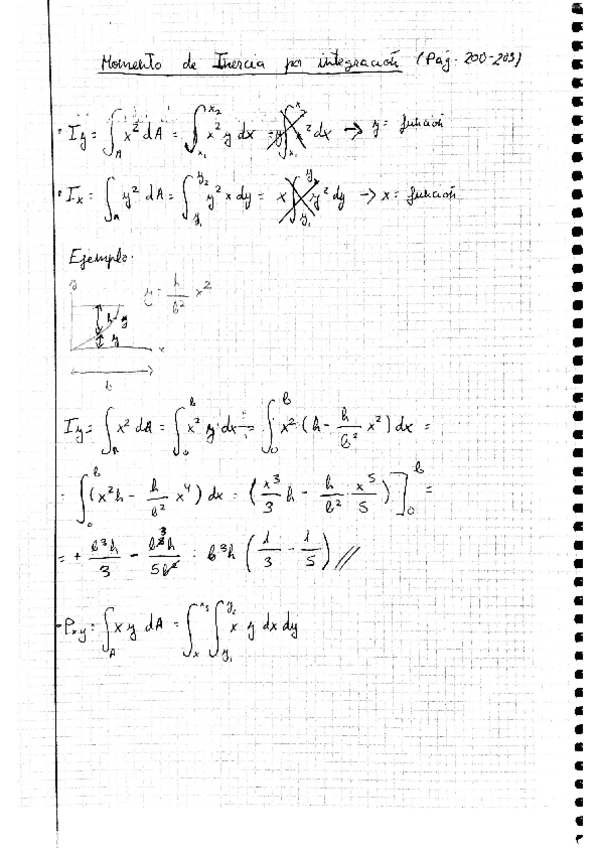 Momento de Inercia por integración (Pág. 200-203)
· Iy = ∫_A x² dA = ∫_{x₁}^{x₂} x² y dx = y ∫_{x₁}^{x₂} x² dx → y = función
· Ix = ∫_A y² dA = ∫_{y₁}^{y₂} y² x dy = x ∫_{y₁}^{y₂} y² dy → x = función
Ejemplo:
y = h/b² x²
h - y
y
x
b
Iy = ∫_A x² dA = ∫_0^b x² y dx = ∫_0^b x² (h - h/b² x²) dx =
= ∫_0^b (x² h - h/b² x⁴) dx = (x³/3 h - h/b² · x⁵/5) ]_0^b =
= + b³h/3 - b³h/5b² = b³h (1/3 - 1/5) //
- Pxy = ∫_A x y dA = ∫_x ∫_{y₁}^{y₂} x y dx dy